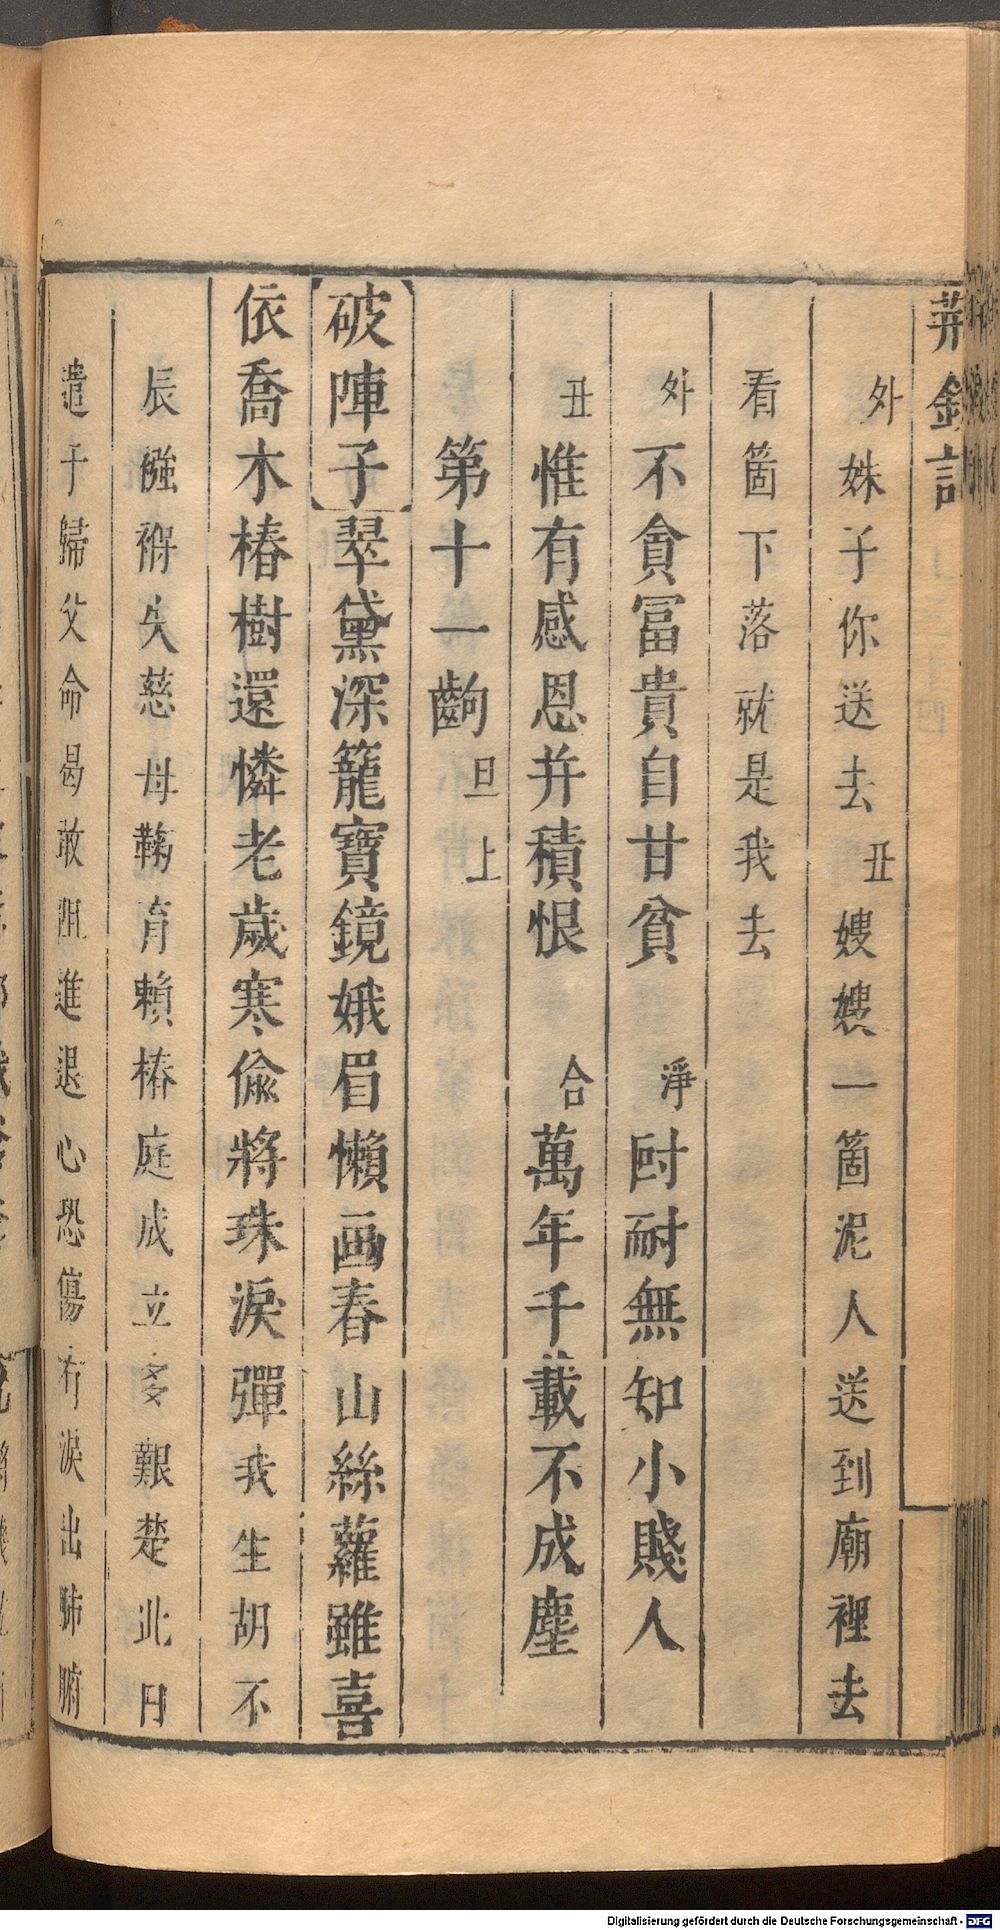 荆釵記
外 姝子你送去 丑 嫂嫂一箇泥人送到廟裡去
看箇下落就是我去
外 不貪冨貴自甘貧 淨 叵耐無知小賤人
丑 惟有感恩并積恨 合 萬年千載不成塵
第十一齣 旦上
破陣子 翠黛深籠寶鏡娥眉懶画春山絲蘿雖喜
依喬木椿樹還憐老歲寒偸將珠淚彈我生胡不
辰襁褓失慈母鞠育賴椿庭成立多艱楚此日
遣于歸父命曷敢阻進退心恐傷有淚出肺腑
Digitalisierung gefördert durch die Deutsche Forschungsgemeinschaft - DFG